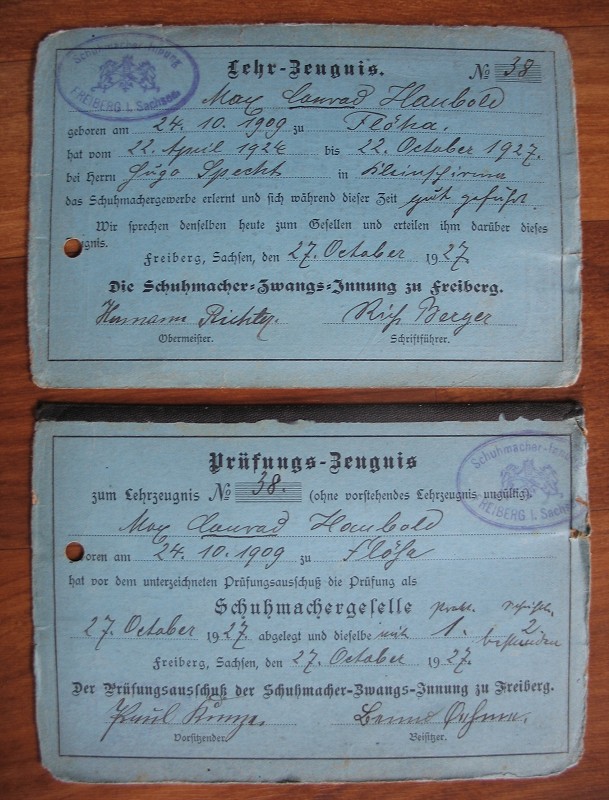 Schuhmacher-Innung
FREIBERG i. Sachsen
Lehr-Zeugnis.
№ 38
Max Conrad Haubold
geboren am 24. 10. 1909 zu Flöha.
hat vom 22. April 1924 bis 22. October 1927.
bei Herrn Hugo Specht in Kleinschirma
das Schuhmachergewerbe erlernt und sich während dieser Zeit gut geführt.
Wir sprechen denselben heute zum Gesellen und erteilen ihm darüber dieses
egnis.
Freiberg, Sachsen, den 27. October 1927.
Die Schuhmacher-Zwangs-Innung zu Freiberg.
Hermann Richter. Berger
Obermeister. Schriftführer.
Prüfungs-Zeugnis
Schuhmacher-Innu
FREIBERG i. Sachs
zum Lehrzeugnis № 38. (ohne vorstehendes Lehrzeugnis ungültig).
Max Conrad Haubold
boren am 24. 10. 1909 zu Flöha
hat vor dem unterzeichneten Prüfungsausschuß die Prüfung als
Schuhmachergeselle
27. October 1927. abgelegt und dieselbe mit 1. 2 bestanden
Freiberg, Sachsen, den 27. October 1927.
Der Prüfungsausschuß der Schuhmacher-Zwangs-Innung zu Freiberg.
Paul Kunze. Oehme.
Vorsitzender. Beisitzer.